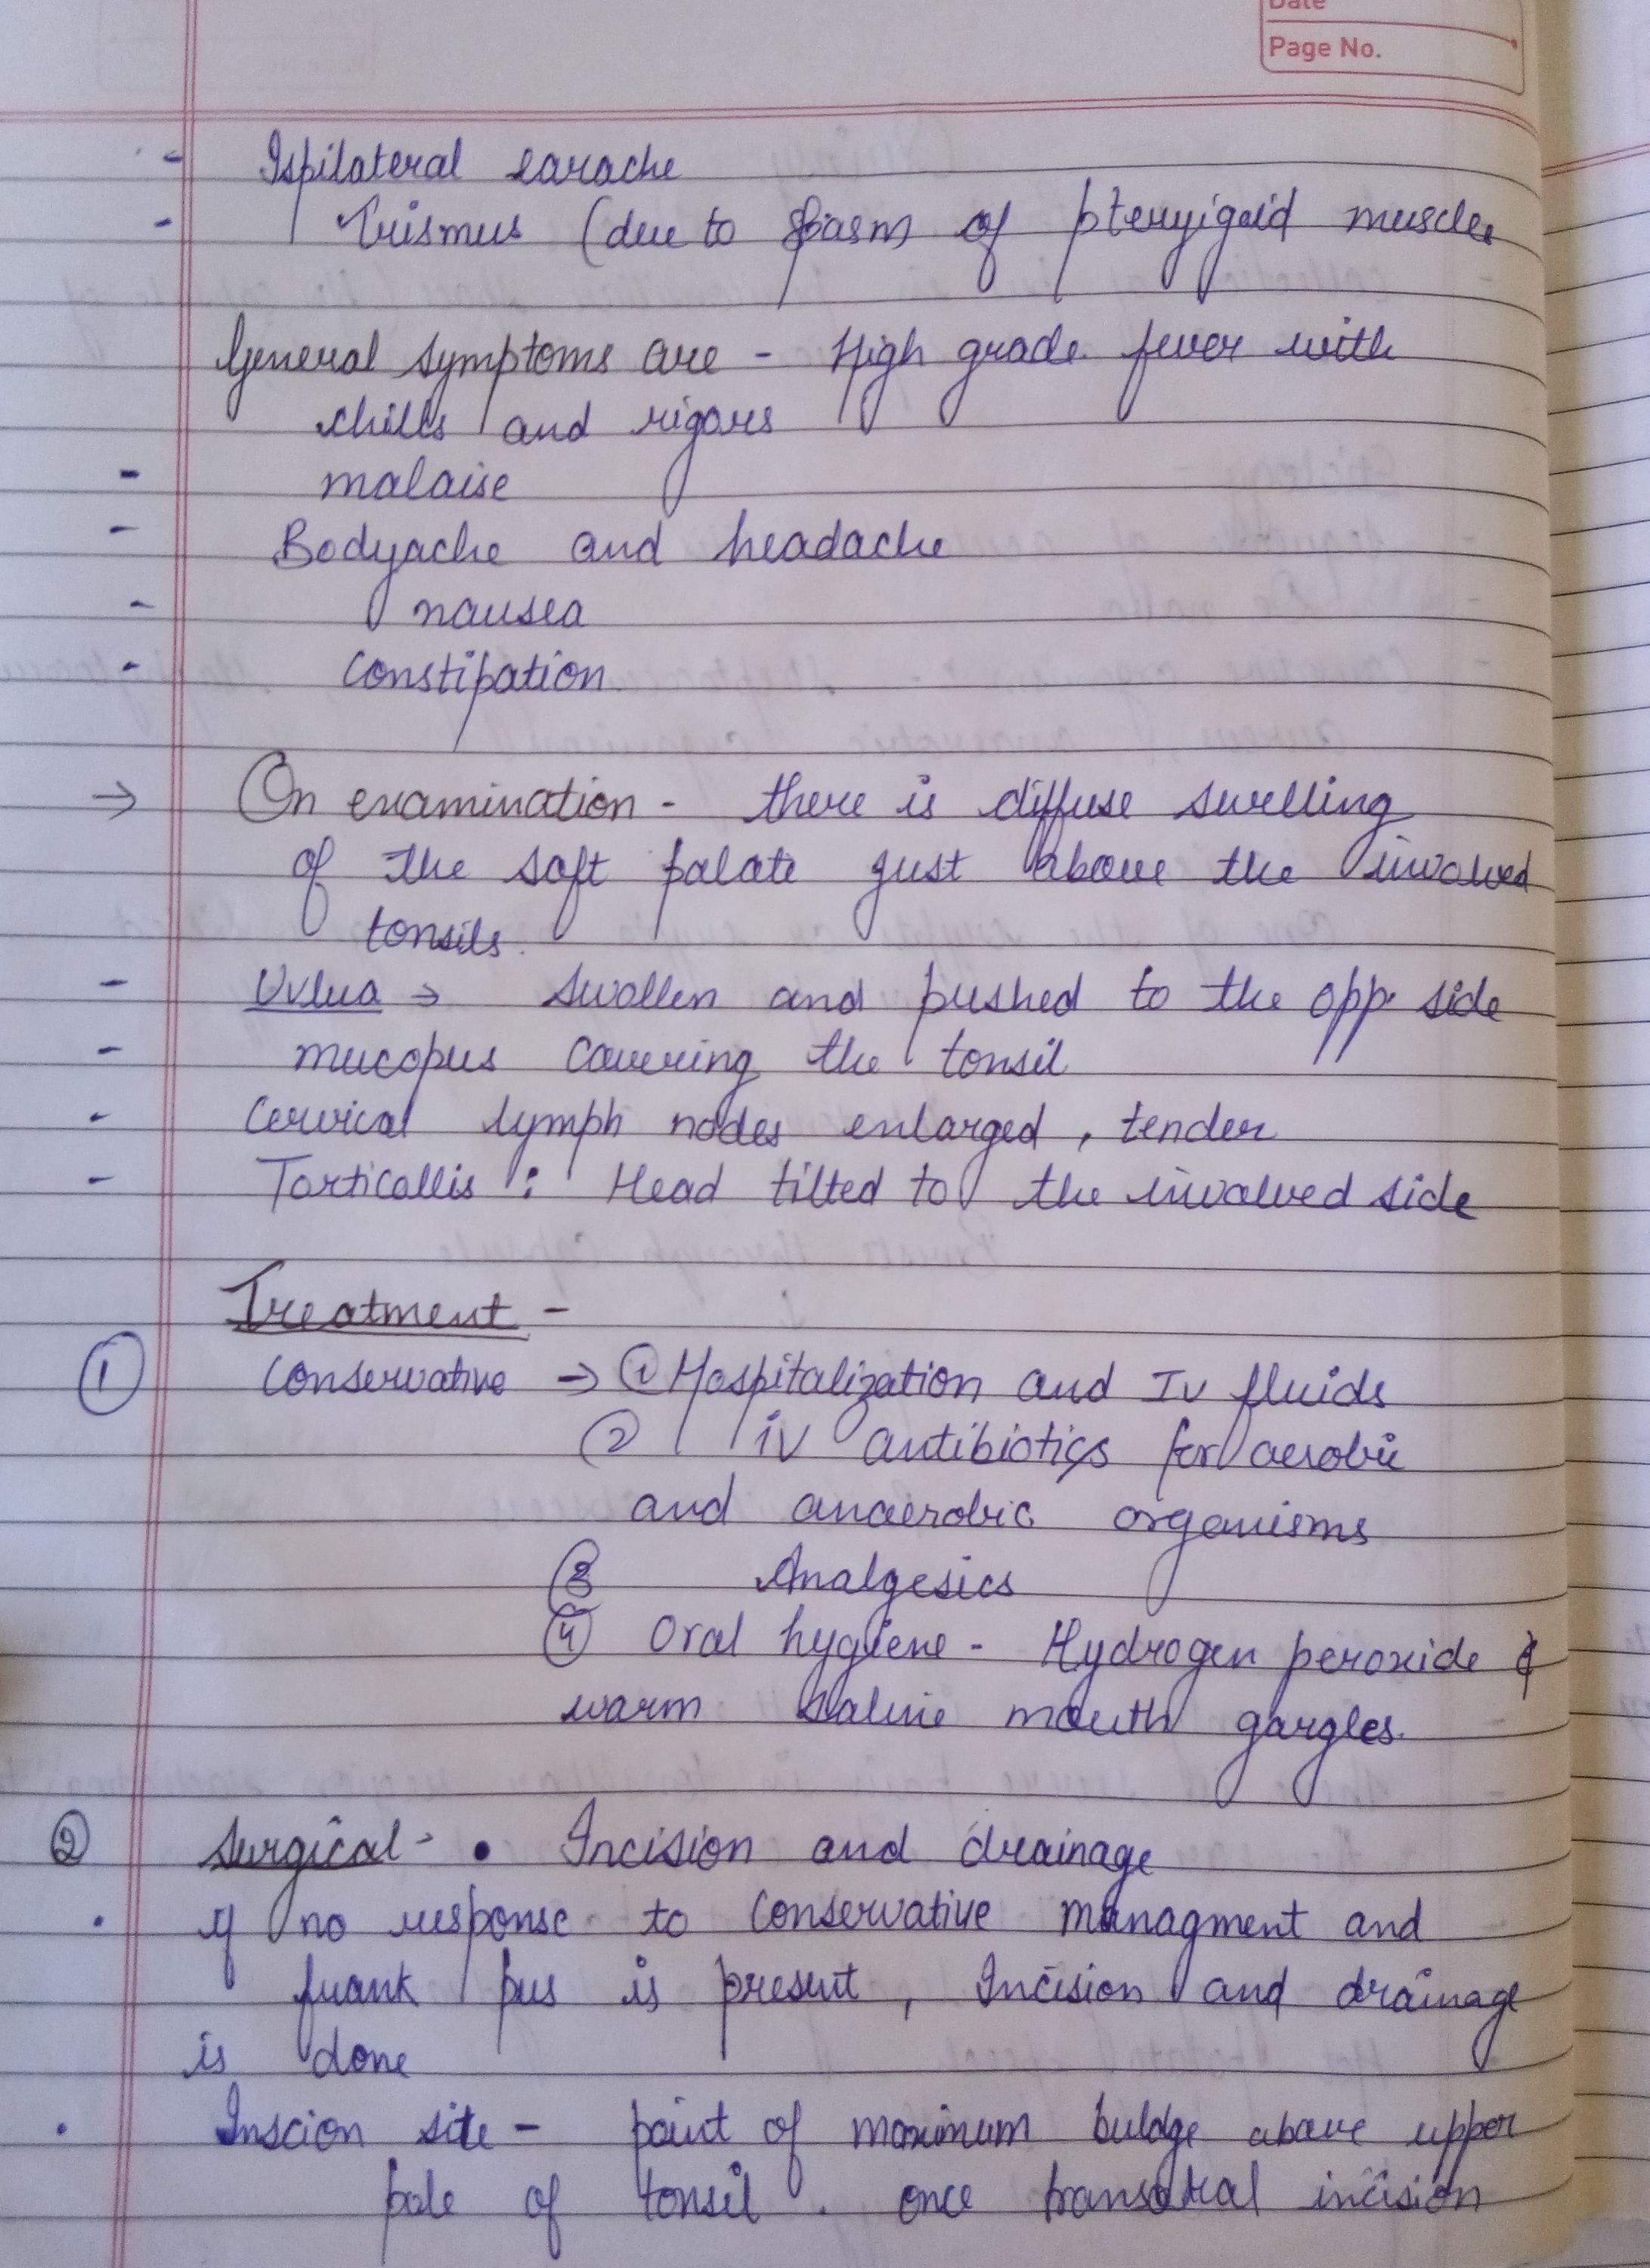 Date
Page No.
- Ispilateral earache
- Trismus (due to spasm of pteryigoid muscles
General symptoms are - High grade fever with
chills and rigors
- malaise
- Bodyache and headache
- nausea
- Constipation
→ On examination - there is diffuse swelling
of the soft palate just above the involved
tonsils.
- Uvlua → swollen and pushed to the opp. side
- mucopus covering the tonsil
- Cervical lymph nodes enlarged, tender
- Torticollis : Head tilted to the involved side
Treatment -
① Conservative → ① Hospitalization and IV fluids
② IV antibiotics for aerobic
and anaerobic organisms
③ Analgesics
④ Oral hygiene - Hydrogen peroxide &
warm saline mouth gargles.
② Surgical - • Incision and drainage
• if no response to conservative managment and
frank pus is present, Incision and drainage
is done
• Inscion site - point of maximum buldge above upper
pole of tonsil. once transoral incision